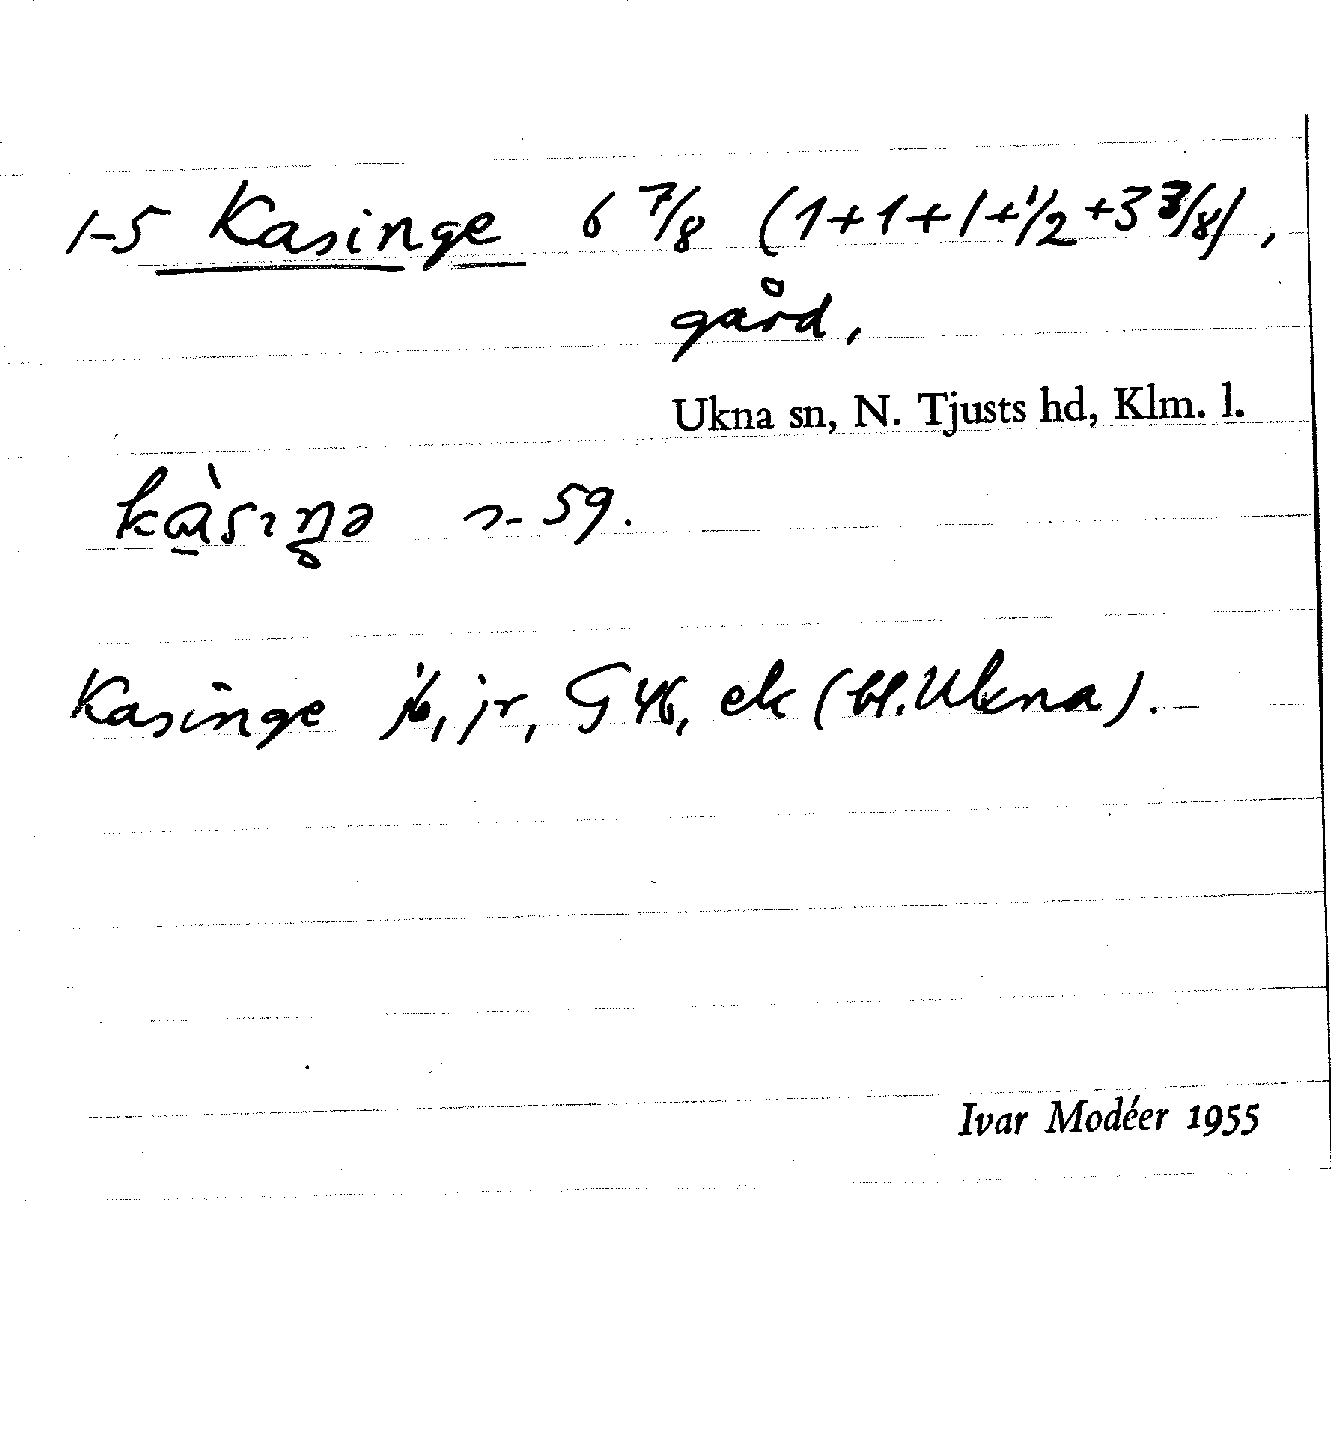 1-5 Kasinge 6 7/8 (1+1+1+1/2+3 3/8),
gård,
Ukna sn, N. Tjusts hd, Klm. l.
kàsıŋə 59.
Kasinge jb, jr, G 46, ek (bl. Ukna).
Ivar Modéer 1955